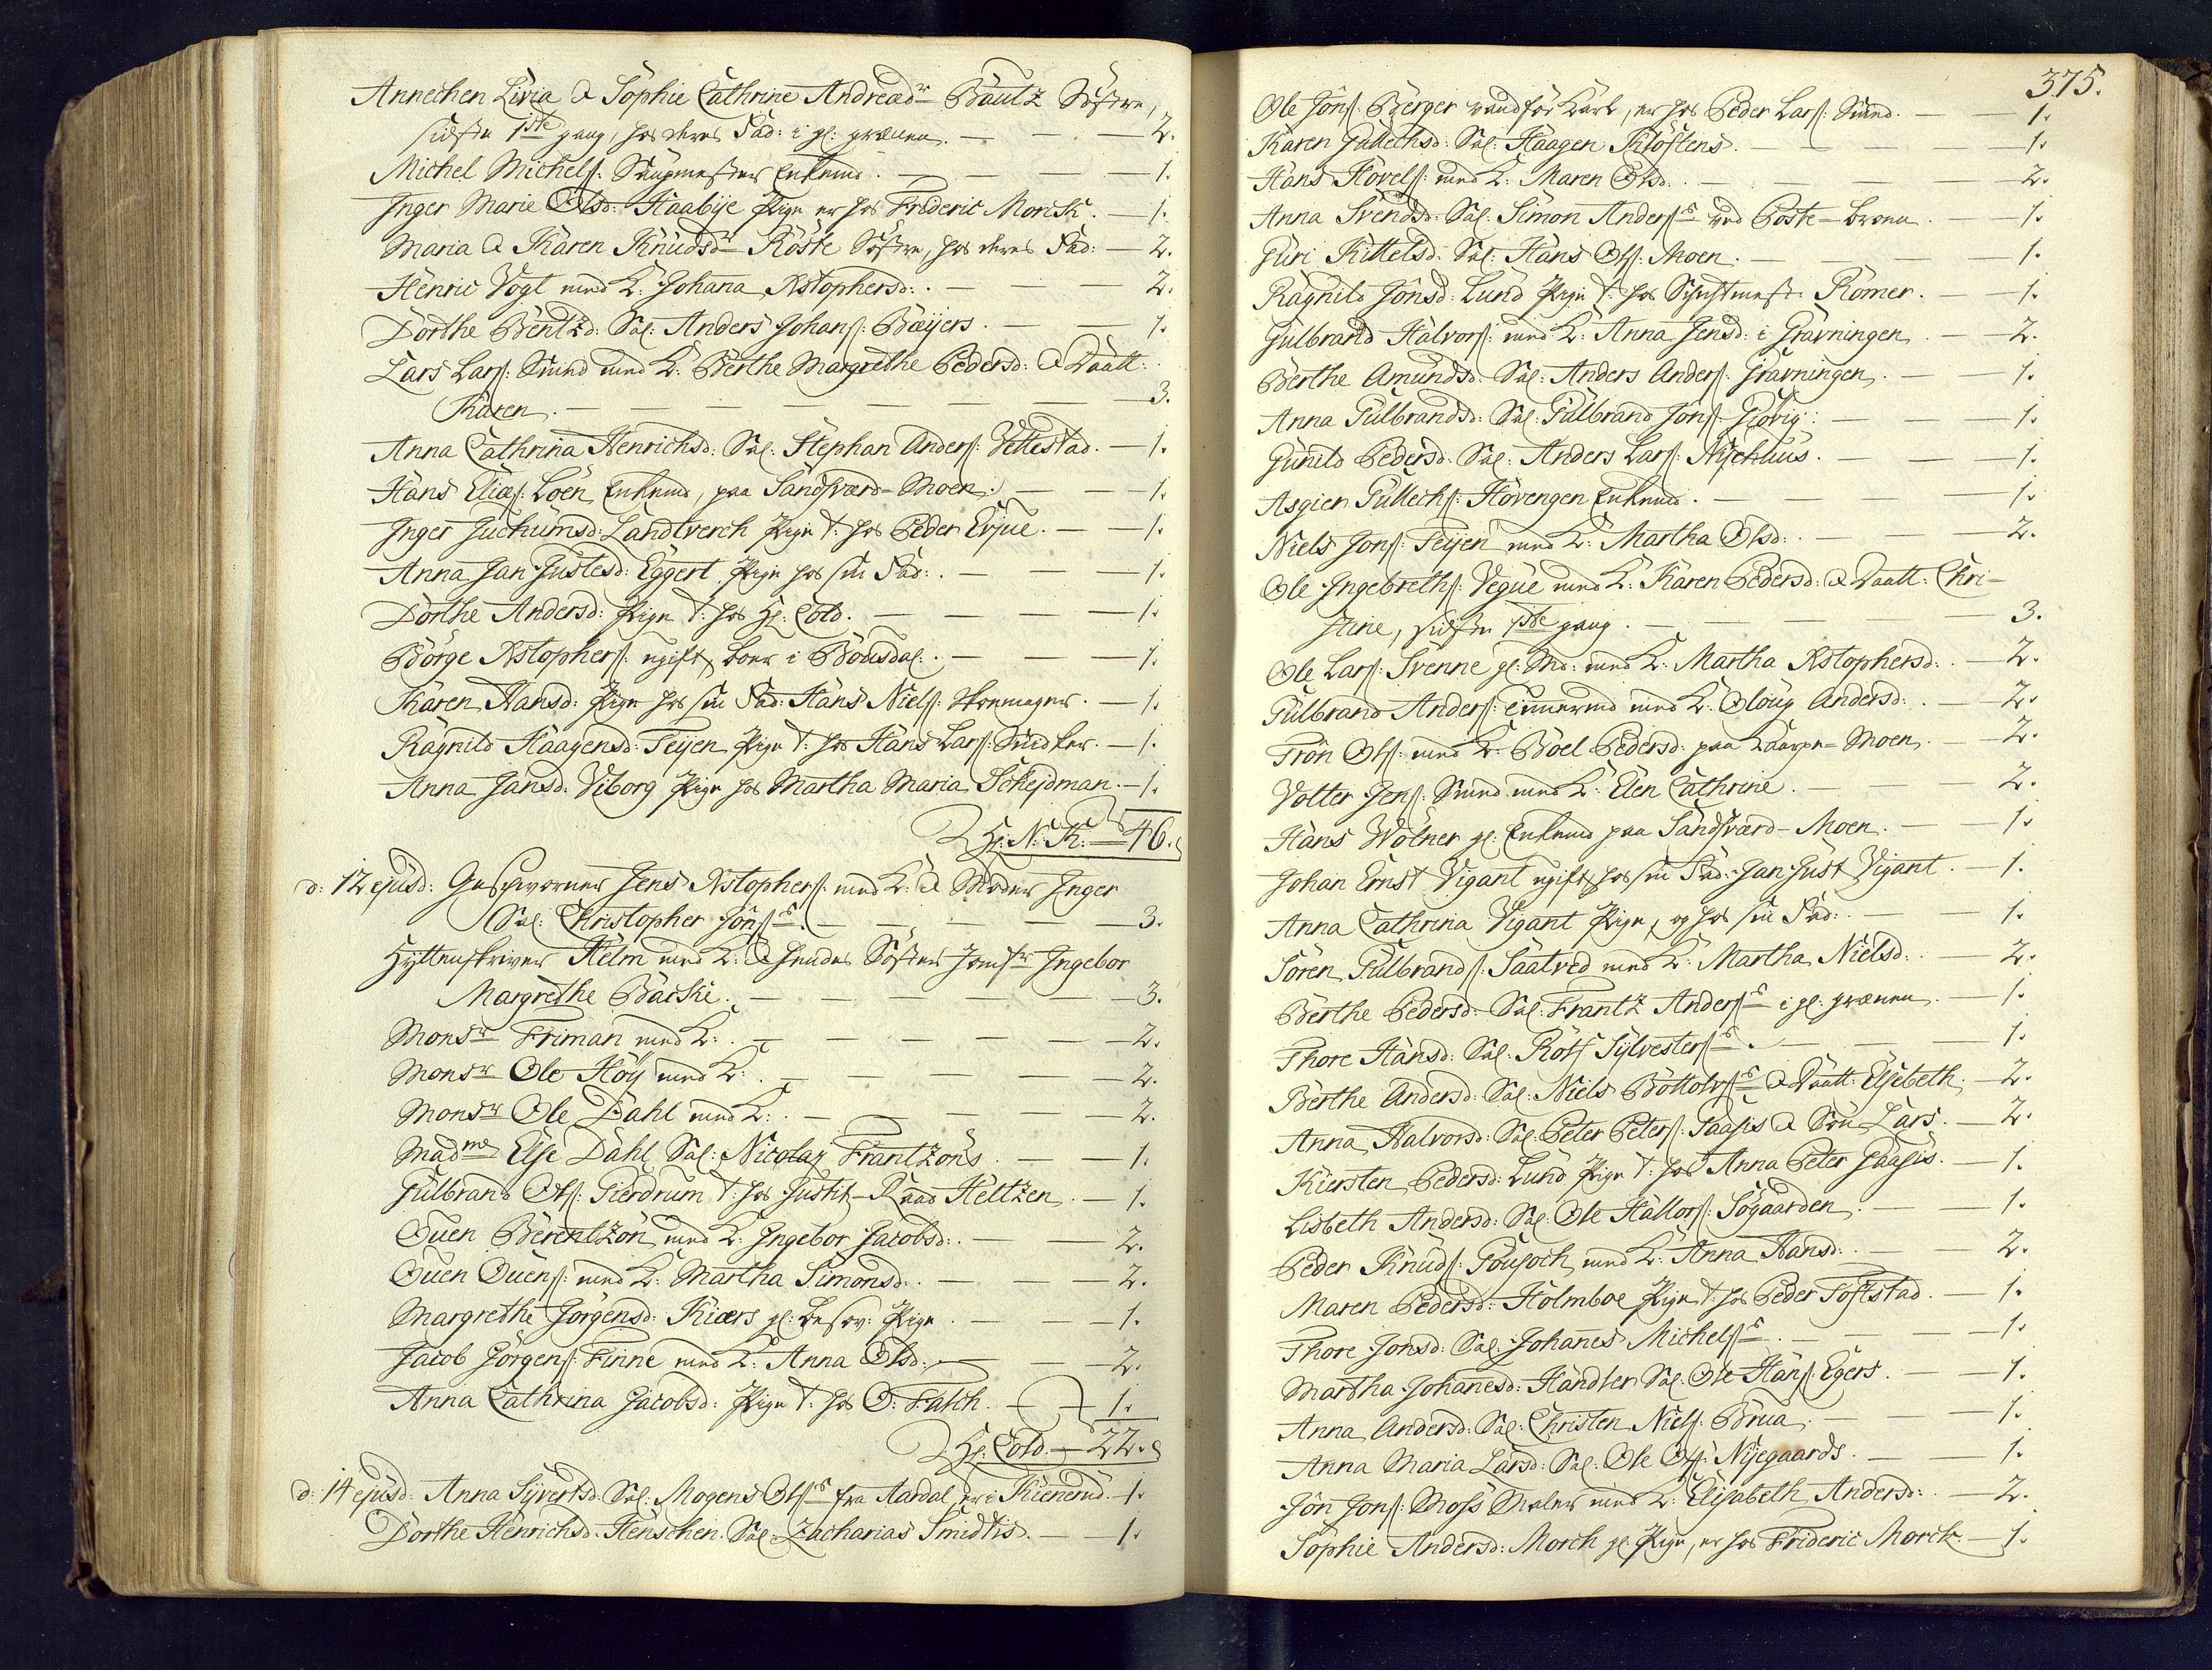 Annechen Livia & Sophie Cathrine Andreæd:r Bautz Søstre,
sidste 1ste gang, hos deres Fad: i gl: grænen. — 2.
Michel Michels: Enkemd. — 1.
Inger Marie Olsd: Haabije Pige er hos Frideric Morck. — 1.
Maria & Karen Knudsd:r Röste Søstre, hos deres Fad: — 2.
Henric Vogt med K: Johana Xstophersd: — 2.
Dorthe Bentzd: Sal: Anders Johans: Bæÿers. — 1.
Lars Lars: Smed med K: Berthe Margrethe Pedersd: & Daatt:
Karen. — 3.
Anna Cathrina Henrichsd: Sal: Stephan Anders: Vettestad. — 1.
Hans Elias: Loen Enkemd, paa Sandsværd-Moen. — 1.
Inger Juchumsd: Landtverch Pige t: hos Peder Evjue. — 1.
Anna Jan Justesd: Eggert Pige hos sin Fad: — 1.
Dorthe Andersd: Pige t: hos Hr: Cold. — 1.
Börge Xstophers: ugift, boer i — 1.
Karen Hansd: Pige hos sin Fad: Hans Niels: Skomager. — 1.
Ragnild Haagensd: Teijen Pige t: hos Hans Lars: Snidker. — 1.
Anna Jansd: Viborg Pige hos Martha Maria Schejdman. — 1.
Hr: N: K: — 46.
d: 12 ejusd: Geschworner Jens Xstophers: med K: & Moder Inger
Sal: Christopher Jöns:s — 3.
Hyttenskriver Helm med K: & hendes Søster Jomfr Ingebor
Margrethe Barski. — 3.
Monsr Friman med K: — 2.
Monsr Ole Höÿ med K: — 2.
Monsr Ole Dahl med K: — 2.
Madme Else Dahl Sal: Nicolaÿ Frantzöns — 1.
Gulbrand Ols: Gierdrum t: hos Justit-Raad Heltzen. — 1.
Ouen Berentzön med K: Ingebor Jacobsd: — 2.
Ouen Ouens: med K: Martha Simonsd: — 2.
Margrethe Jörgensd: Kiærs gl: besov: Pige — 1.
Jacob Jörgens: Finne med K: Anna Olsd: — 2.
Anna Cathrina Jacobsd: Pige t: hos O: Falch. — 1.
Hr: Cold. — 22.
d: 14 ejusd: Anna Sÿvertsd: Sal: Mogens Ols:s fra Aardal, er i Kienerud. — 1.
Dorthe Henrichsd: Henschen Sal: Zacharias Smidtis. — 1.
375.
Ole Jöns: Berger vandför Karl, er hos Peder Lars: Smed. — 1.
Karen Gullechsd: Sal: Haagen Klöftens. — 1.
Hans Hovels: med K: Maren Olsd: — 2.
Anna Svendsd: Sal: Simon Anders:s ved Poste-broen — 1.
Guri Kittelsd: Sal: Hans Ols: Moen. — 1.
Ragnild Jönsd: Lund Pige t: hos Schichtmest: Römer. — 1.
Gulbrand Halvors: med K: Anna Jensd: i Gravningen. — 2.
Berthe Amundsd: Sal: Anders Anders: Gravningen. — 1.
Anna Gulbrandsd: Sal: Gulbrand Jöns: Gjövig: — 1.
Gunild Pedersd: Sal: Anders Lars: Nÿehuus. — 1.
Asgier Gullechs: Hövengen Enkemd. — 1.
Niels Jons: Teijen med K: Martha Olsd: — 2.
Ole Ingebreths: Vegue med K: Karen Pedersd: & Daatt: Chri-
stine, sidste 1ste gang. — 3.
Ole Lars: Svenne gl: Md: med K: Martha Xstophersd: — 2.
Gulbrand Anders: Tömmermd med K: Oloug Andersd: — 2.
Trön Ols: med K: Boel Pedersd: paa Moen. — 2.
Volter Jens: Smed med K: Elen Cathrine. — 2.
Hans Wölner gl: Enkemd paa Sandsværd-Moen. — 1.
Johan Ernst Vigant ugift, hos sin Fad: Jan Just Vigant. — 1.
Anna Cathrina Vigant Pige, og hos sin Fad: — 1.
Sören Gulbrands: Saatved med K: Martha Nielsd: — 2.
Berthe Pedersd: Sal: Frantz Anders:s i gl: grænen. — 1.
Thore Hansd: Sal: Rolf Sÿlvesters:s — 1.
Berthe Andersd: Sal: Niels Böttolvs:s & Daatt: Elsebeth. — 2.
Anna Halvorsd: Sal: Peter Peters: Saasis & Sön Lars. — 2.
Kiersten Pedersd: Lund Pige t: hos Anna Peter Saasis. — 1.
Lisbeth Andersd: Sal: Ole Hallors: Sögaarden. — 1.
Peder Knuds: Fousoch med K: Anna Hansd: — 2.
Maren Pedersd: Holmboe Pige t: hos Peder Toftstad. — 1.
Thore Jonsd: Sal: Johanes Michels:s — 1.
Martha Johanesd: Handler Sal: Ole Hans: Egers. — 1.
Anna Andersd: Sal: Christen Niels: Brua. — 1.
Anna Maria Larsd: Sal: Ole Ols: Nÿegaards. — 1.
Jön Jons: Moss Maler med K: Elisabeth Andersd: — 2.
Sophie Andersd: Morch gl: Pige, er hos Frideric Morck. — 1.